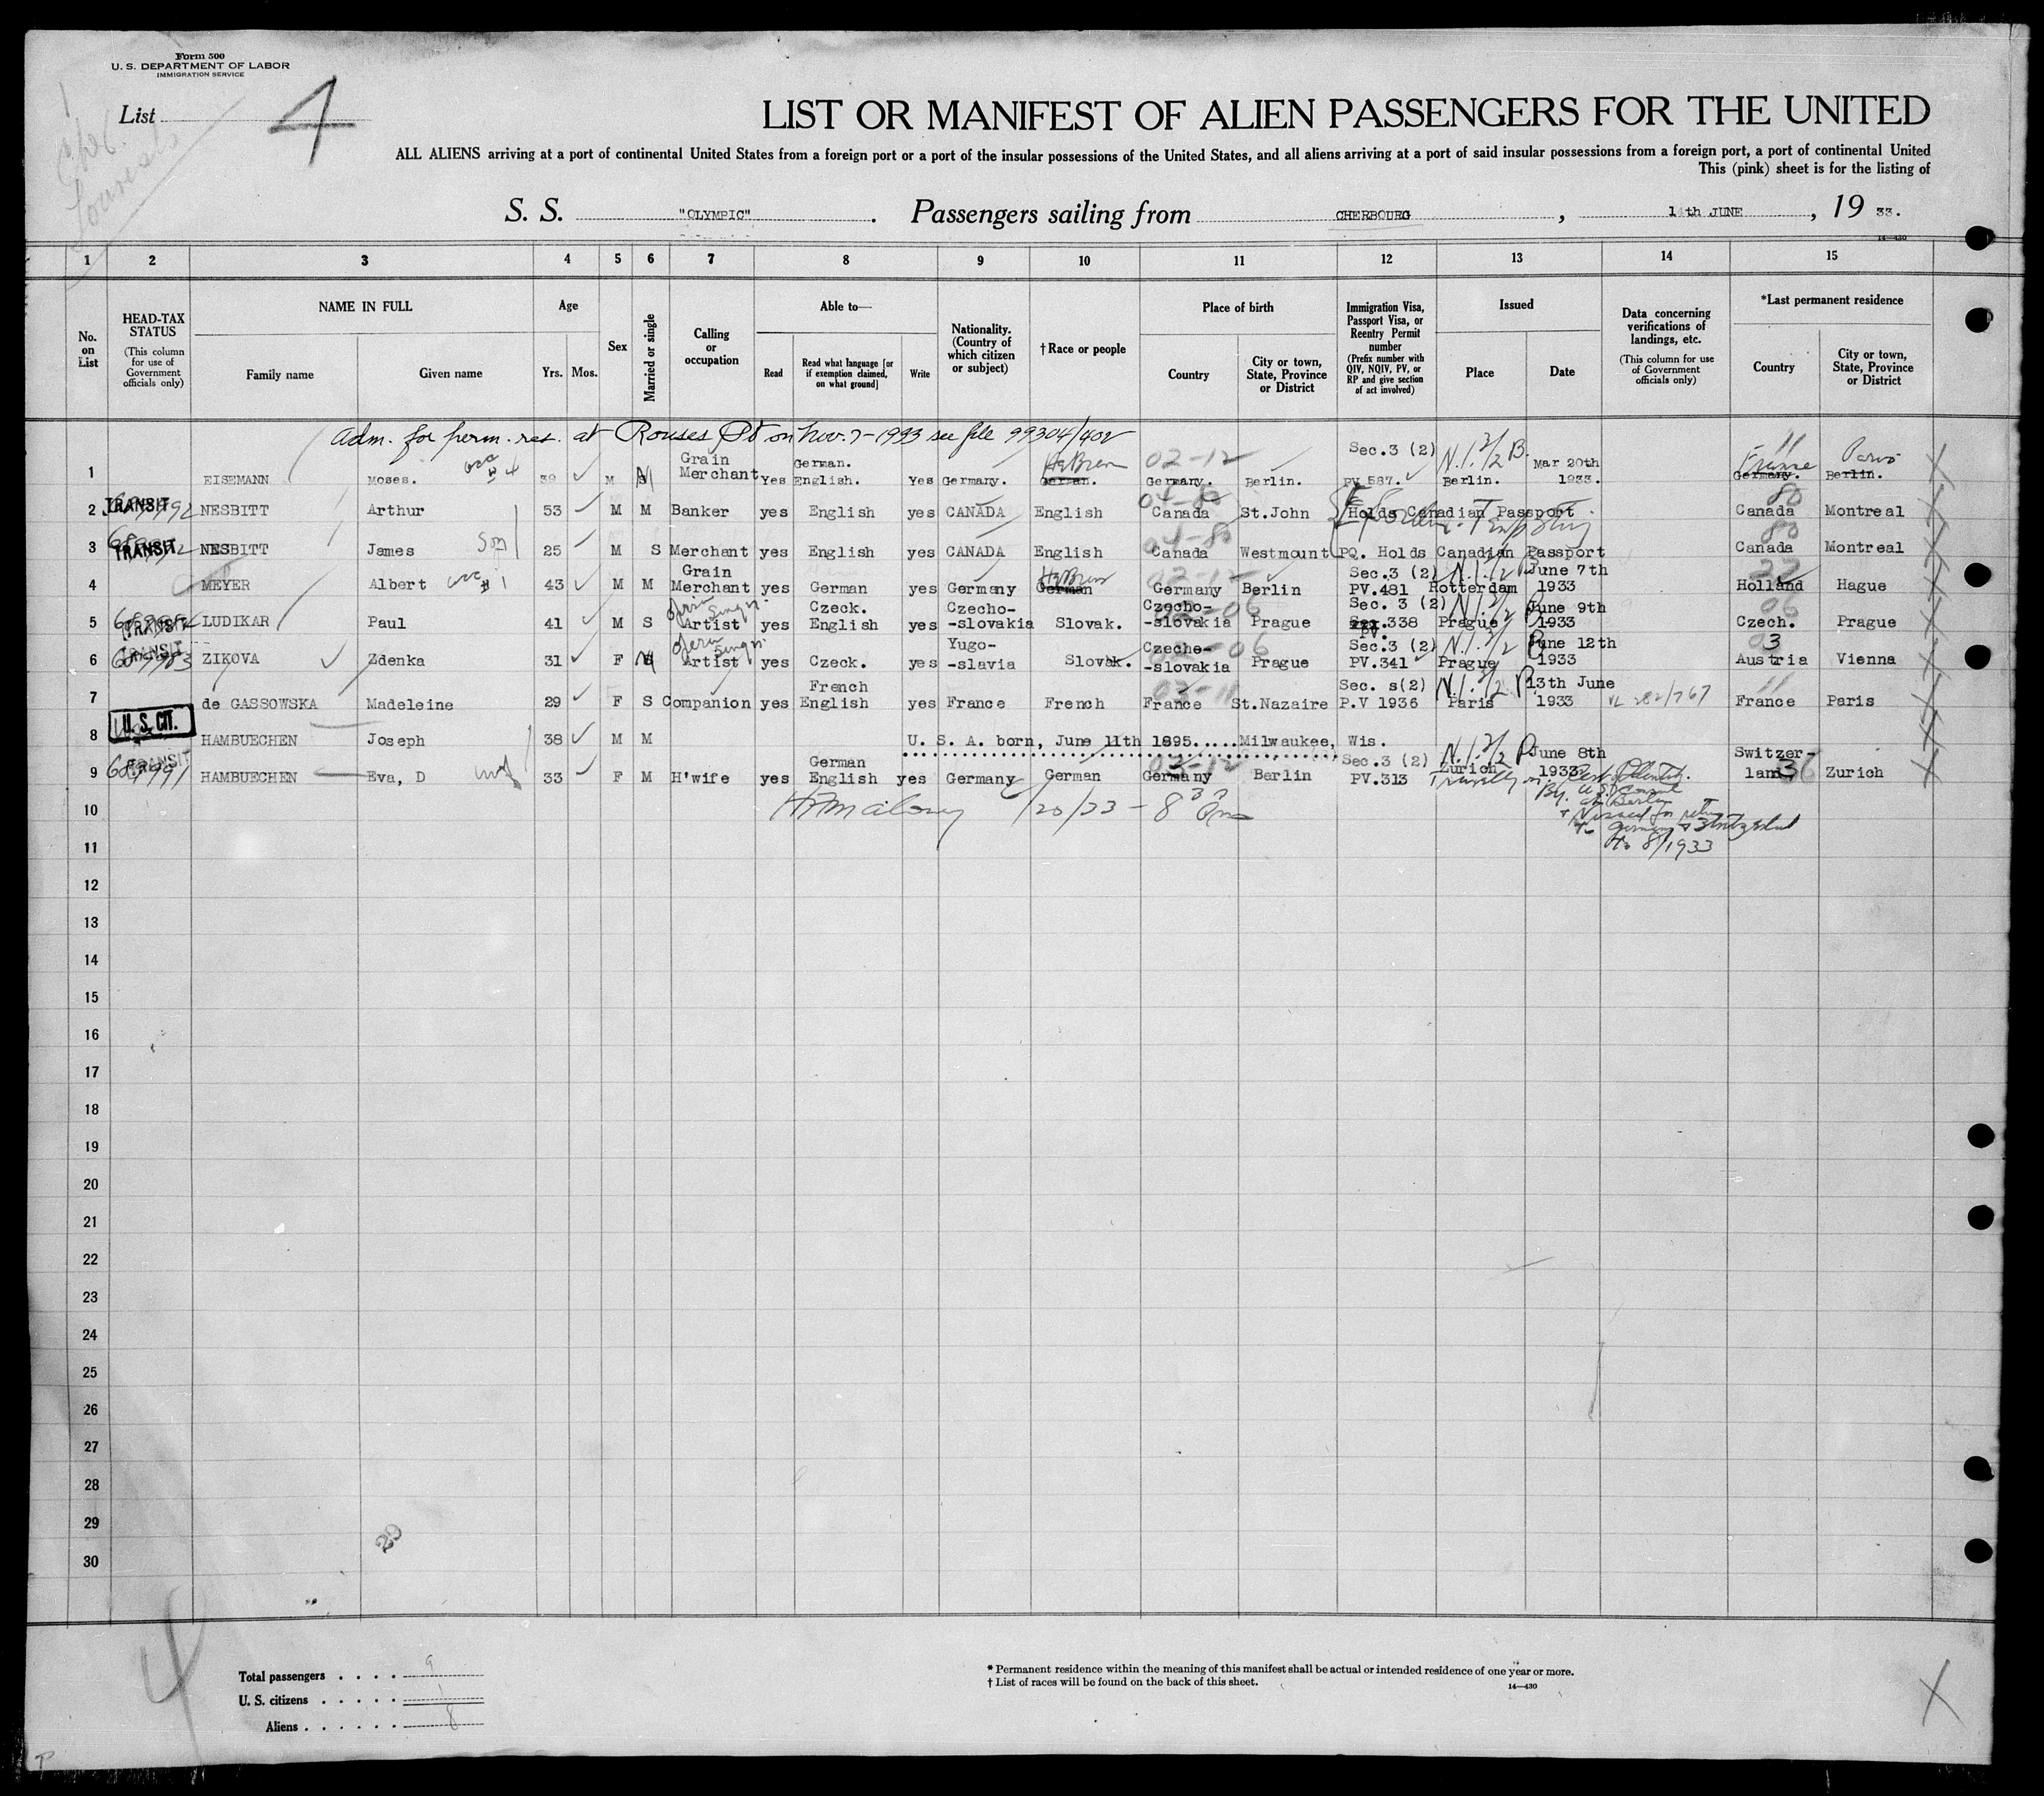 Form 500
U. S. DEPARTMENT OF LABOR
IMMIGRATION SERVICE
List 4
LIST OR MANIFEST OF ALIEN PASSENGERS FOR THE UNITED
ALL ALIENS arriving at a port of continental United States from a foreign port or a port of the insular possessions of the United States, and all aliens arriving at a port of said insular possessions from a foreign port, a port of continental United
This (pink) sheet is for the listing of
S. S. "OLYMPIC". Passengers sailing from CHERBOURG, 14th JUNE, 19 33.
14—430
1 2 3 4 5 6 7 8 9 10 11 12 13 14 15
No. on List
HEAD-TAX STATUS (This column for use of Government officials only)
NAME IN FULL Family name Given name
Age Yrs. Mos.
Sex
Married or single
Calling or occupation
Able to— Read Read what language [or if exemption claimed, on what ground] Write
Nationality. (Country of which citizen or subject)
†Race or people
Place of birth Country City or town, State, Province or District
Immigration Visa, Passport Visa, or Reentry Permit number (Prefix number with QIV, NQIV, PV, or RP and give section of act involved)
Issued Place Date
Data concerning verifications of landings, etc. (This column for use of Government officials only)
*Last permanent residence Country City or town, State, Province or District
Adm. for perm. res. at Rouses Pt on Nov. 7-1933 see file 99304/402
1 EISEMANN Moses. 39 M S Grain Merchant Yes German. English. Yes Germany. German. Hebrew 02-12 Germany. Berlin. Sec.3 (2) PV 587. Berlin. Mar 20th 1933. Germany. France Berlin. Paris
2 TRANSIT NESBITT Arthur 53 M M Banker yes English yes CANADA English 04-80 Canada St.John Holds Canadian Passport 80 Canada Montreal
3 TRANSIT NESBITT James Son 25 M S Merchant yes English yes CANADA English 04-80 Canada Westmount PQ. Holds Canadian Passport 80 Canada Montreal
4 MEYER Albert 43 M M Grain Merchant yes German yes Germany German Hebrew 02-12 Germany Berlin Sec.3 (2) PV.481 Rotterdam June 7th 1933 Holland Hague
5 TRANSIT LUDIKAR Paul 41 M S Artist yes Czeck. English yes Czecho-slovakia Slovak. Czecho-slovakia Prague Sec. 3 (2) PV. 338 Prague June 9th 1933 06 Czech. Prague
6 TRANSIT ZIKOVA Zdenka 31 F Artist yes Czeck. yes Yugo-slavia Slovak. Czeche-slovakia Prague Sec.3 (2) PV.341 Prague June 12th 1933 Austria Vienna
7 de GASSOWSKA Madeleine 29 F S Companion yes French English yes France French France St.Nazaire Sec. s(2) P.V 1936 Paris 13th June 1933 VL 282/767 France Paris
8 U.S. CIT. HAMBUECHEN Joseph 38 M M U. S. A. born, June 11th 1895.....Milwaukee, Wis.
9 TRANSIT 687991 HAMBUECHEN Eva, D wife 33 F M H'wife yes German English yes Germany German 02-12 Germany Berlin Sec.3 (2) PV.313 Zurich June 8th 1933 Switzer-land 36 Zurich
10
11
12
13
14
15
16
17
18
19
20
21
22
23
24
25
26
27
28
29
30
Total passengers . . . . 9
U. S. citizens . . . . . 1
Aliens . . . . . . 8
4
* Permanent residence within the meaning of this manifest shall be actual or intended residence of one year or more.
† List of races will be found on the back of this sheet.
14—430